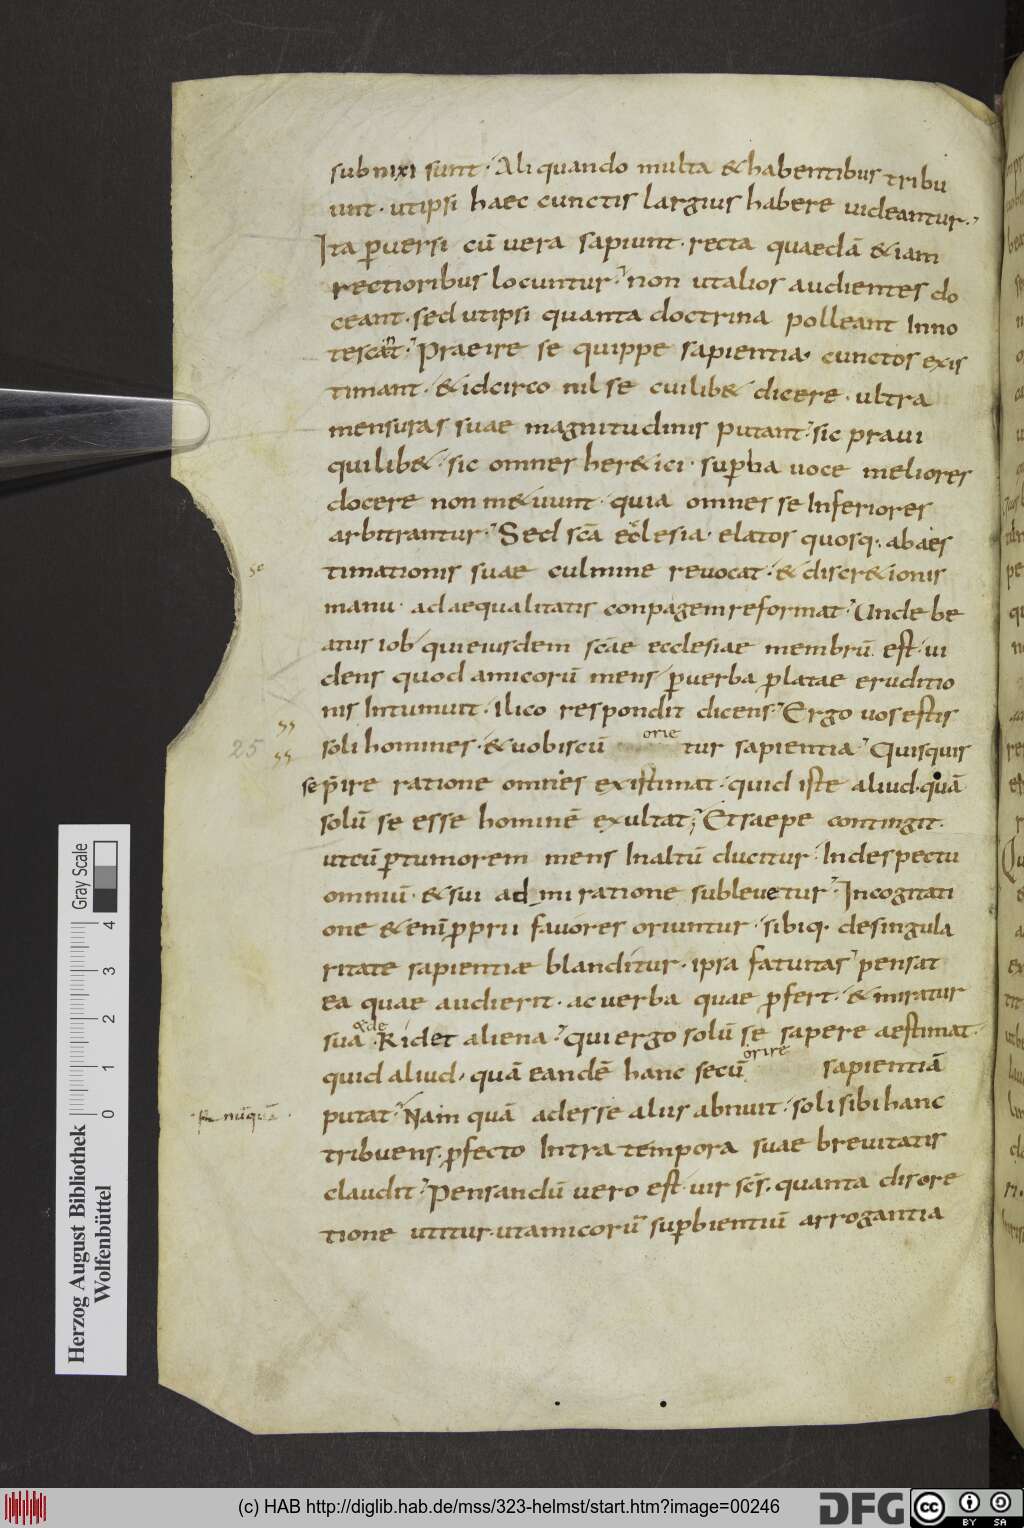 subnixi sunt· Aliquando multa &habentibus tribu
unt· utipsi haec cunctis largius habere uideantur·
Ita ꝑuersi cū uera sapiunt· recta quaedā &iam
rectioribus locuntur· non utalios audientes do
ceant· sed utipsi quanta doctrina polleant Inno
tescāt· Praeire se quippe sapientia· cunctos exis
timant· &idcirco nil se cuilib& dicere· ultra
mensuras suae magnitudinis putant· sic praui
quilib&· sic omnes her&ici· supꝑba uoce meliores
docere non m&uunt· quia omnes se Inferiores
arbitrantur· Sed scā ecclesia· elatos quosq· abaes
timationis suae culmine reuocat· & discr&ionis
manu· adaequalitatis conpagemreformat· Unde be
atus iob qui eiusdem scāe ecclesiae membrū est· ui
dens quod amicorū mens ꝑuerba ꝓlatae eruditio
nis Intumuit· Ilico respondit dicens· Ergo uos estis
soli homines· &uobiscū orietur sapientia· Quisquis
se p̄ire ratione omnes existimat· quid iste aliud· quā
solū se esse hominē exultat; Etsaepe contingit·
utcū ꝑtumorem mens Inaltū ducitur· Indespectu
omniū· &sui admiratione subleuetur· Incogitati
one &enī ꝓprii fauores oriuntur· sibiq· desingula
ritate sapientiæ blanditur· ipsa fatuitas pensat
ea quae audierit· ac uerba quae ꝓfert· &miratur
sua· &de
Ridet aliena· qui ergo solū se sapere aestimat·
quid aliud, quā eandē hanc secū orire sapientiā
putat· Nam quā adesse aliis abnuit· soli sibi hanc
nūquā
tribuens· ꝓfecto Intra tempora suae breuitatis
claudit· Pensandū uero est· uir scs̄· quanta discre
tione utitur· utamicorū supꝑbientiū arrogantia
25
Gray Scale
0 1 2 3 4
Herzog August Bibliothek
Wolfenbüttel
(c) HAB http://diglib.hab.de/mss/323-helmst/start.htm?image=00246
DFG
cc BY SA